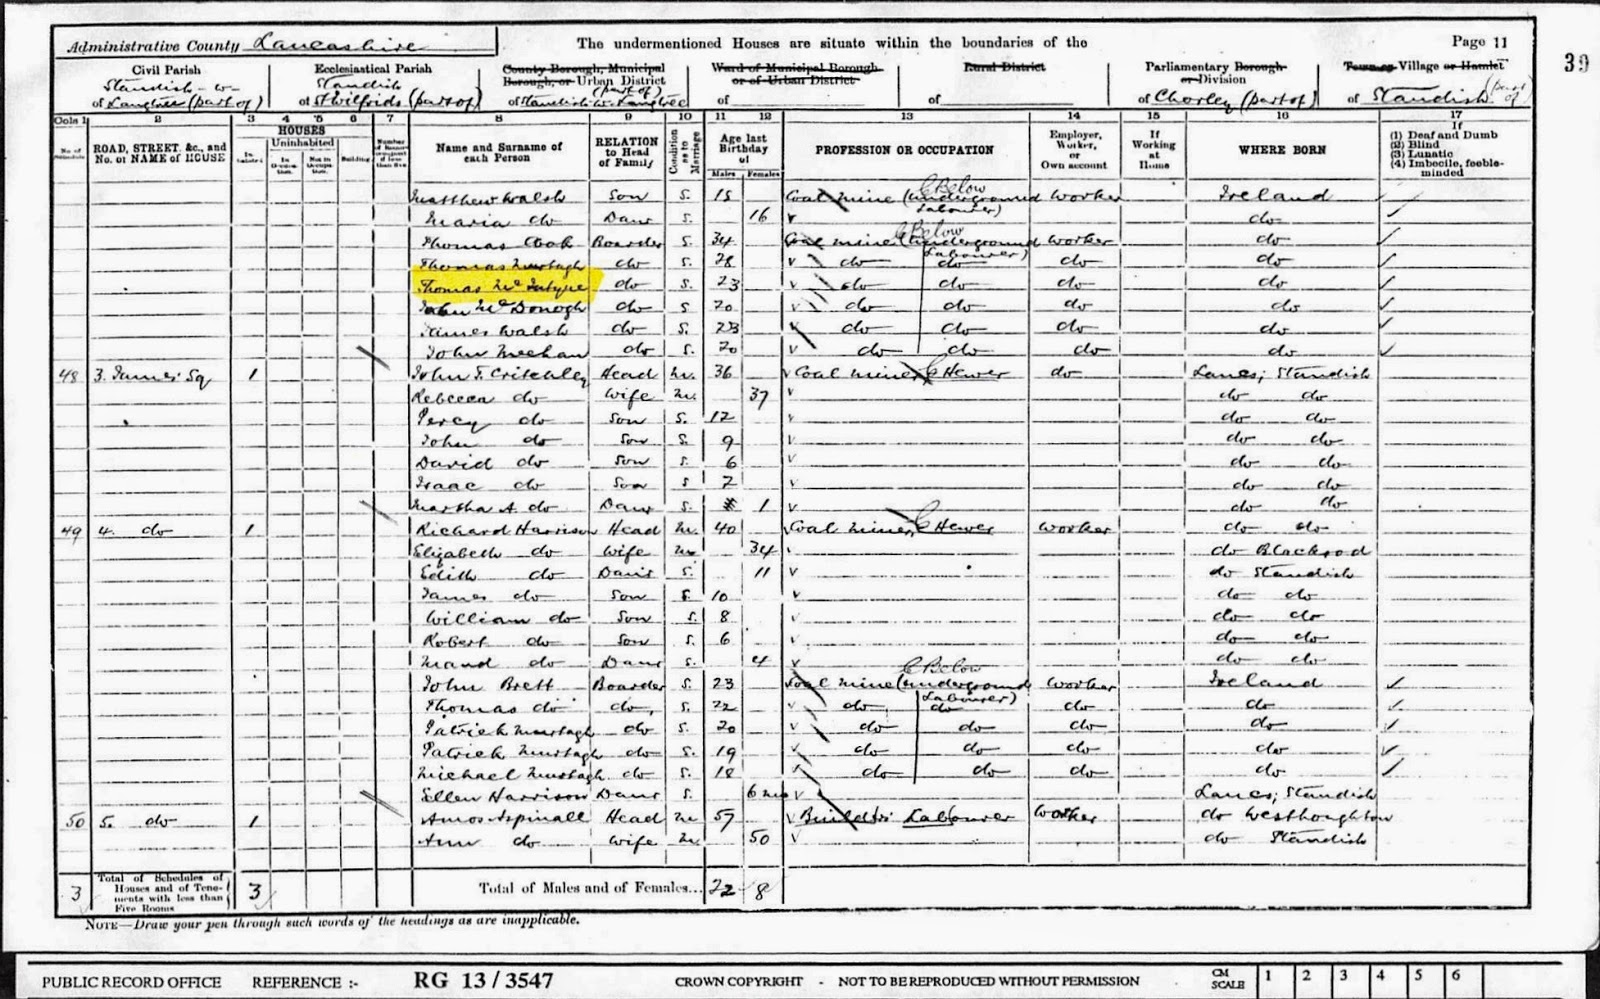 Administrative County Lancashire
The undermentioned Houses are situate within the boundaries of the
Page 11
39
Civil Parish
of Standish-w-Langtree (part of)
Ecclesiastical Parish
of Standish St Wilfrids (part of)
County Borough, Municipal Borough, or Urban District
of Standish-w-Langtree (part of)
Ward of Municipal Borough or of Urban District
of
Rural District
of
Parliamentary Borough or Division
of Chorley (part of)
Town or Village or Hamlet
of Standish (part of)
Cols 1 2 3 4 5 6 7 8 9 10 11 12 13 14 15 16 17
No. of Schedule
ROAD, STREET, &c., and No. or NAME of HOUSE
HOUSES
Inhabited
Uninhabited
In Occupation.
Not in Occupation.
Building
Number of Rooms occupied if less than five
Name and Surname of each Person
RELATION to Head of Family
Condition as to Marriage
Age last Birthday of
Males Females
PROFESSION OR OCCUPATION
Employer, Worker, or Own account
If Working at Home
WHERE BORN
If
(1) Deaf and Dumb
(2) Blind
(3) Lunatic
(4) Imbecile, feeble-minded
Matthew Walsh Son S. 15 Coal mine (underground Labourer) Below Worker Ireland
Maria do Daur S. 16 do
Thomas Cook Boarder S. 34 Coal mine (underground Labourer) Below Worker do
Thomas Murtagh do S. 28 do do do do
Thomas McIntyre do S. 23 do do do do
John McDonogh do S. 20 do do do do
James Walsh do S. 23 do do do do
John Meehan do S. 20 do do do do
48 3. James Sq 1 John T. Critchley Head M. 36 Coal miner Hewer do Lancs; Standish
Rebecca do Wife M. 37 do do
Percy do Son S. 12 do do
John do Son S. 9 do do
David do Son S. 6 do do
Isaac do Son S 2 do do
Martha A. do Daur S. 1 do do
49 4. do 1 Richard Harrison Head M. 40 Coal miner Hewer Worker do do
Elizabeth do Wife M 34 do Blackrod
Edith do Daur S. 11 do Standish
James do Son S. 10 do do
William do Son S. 8 do do
Robert do Son S. 6 do do
Maud do Daur S. 4 do do
John Brett Boarder S. 23 Coal mine (underground Labourer) Below Worker Ireland
Thomas do do S. 22 do do do do
Patrick Murtagh do S. 20 do do do do
Patrick Murtagh do S. 19 do do do do
Michael Murtagh do S. 18 do do do do
Ellen Harrison Daur S. 6 mos Lancs; Standish
50 5. do 1 Amos Aspinall Head M 57 Builder's Labourer Worker do Westhoughton
Ann do Wife M. 50 do Standish
3 Total of Schedules of Houses and of Tenements with less than Five Rooms 3 Total of Males and of Females... 22 8
NOTE—Draw your pen through such words of the headings as are inapplicable.
PUBLIC RECORD OFFICE REFERENCE :- RG 13 / 3547 CROWN COPYRIGHT - NOT TO BE REPRODUCED WITHOUT PERMISSION CM SCALE 1 2 3 4 5 6